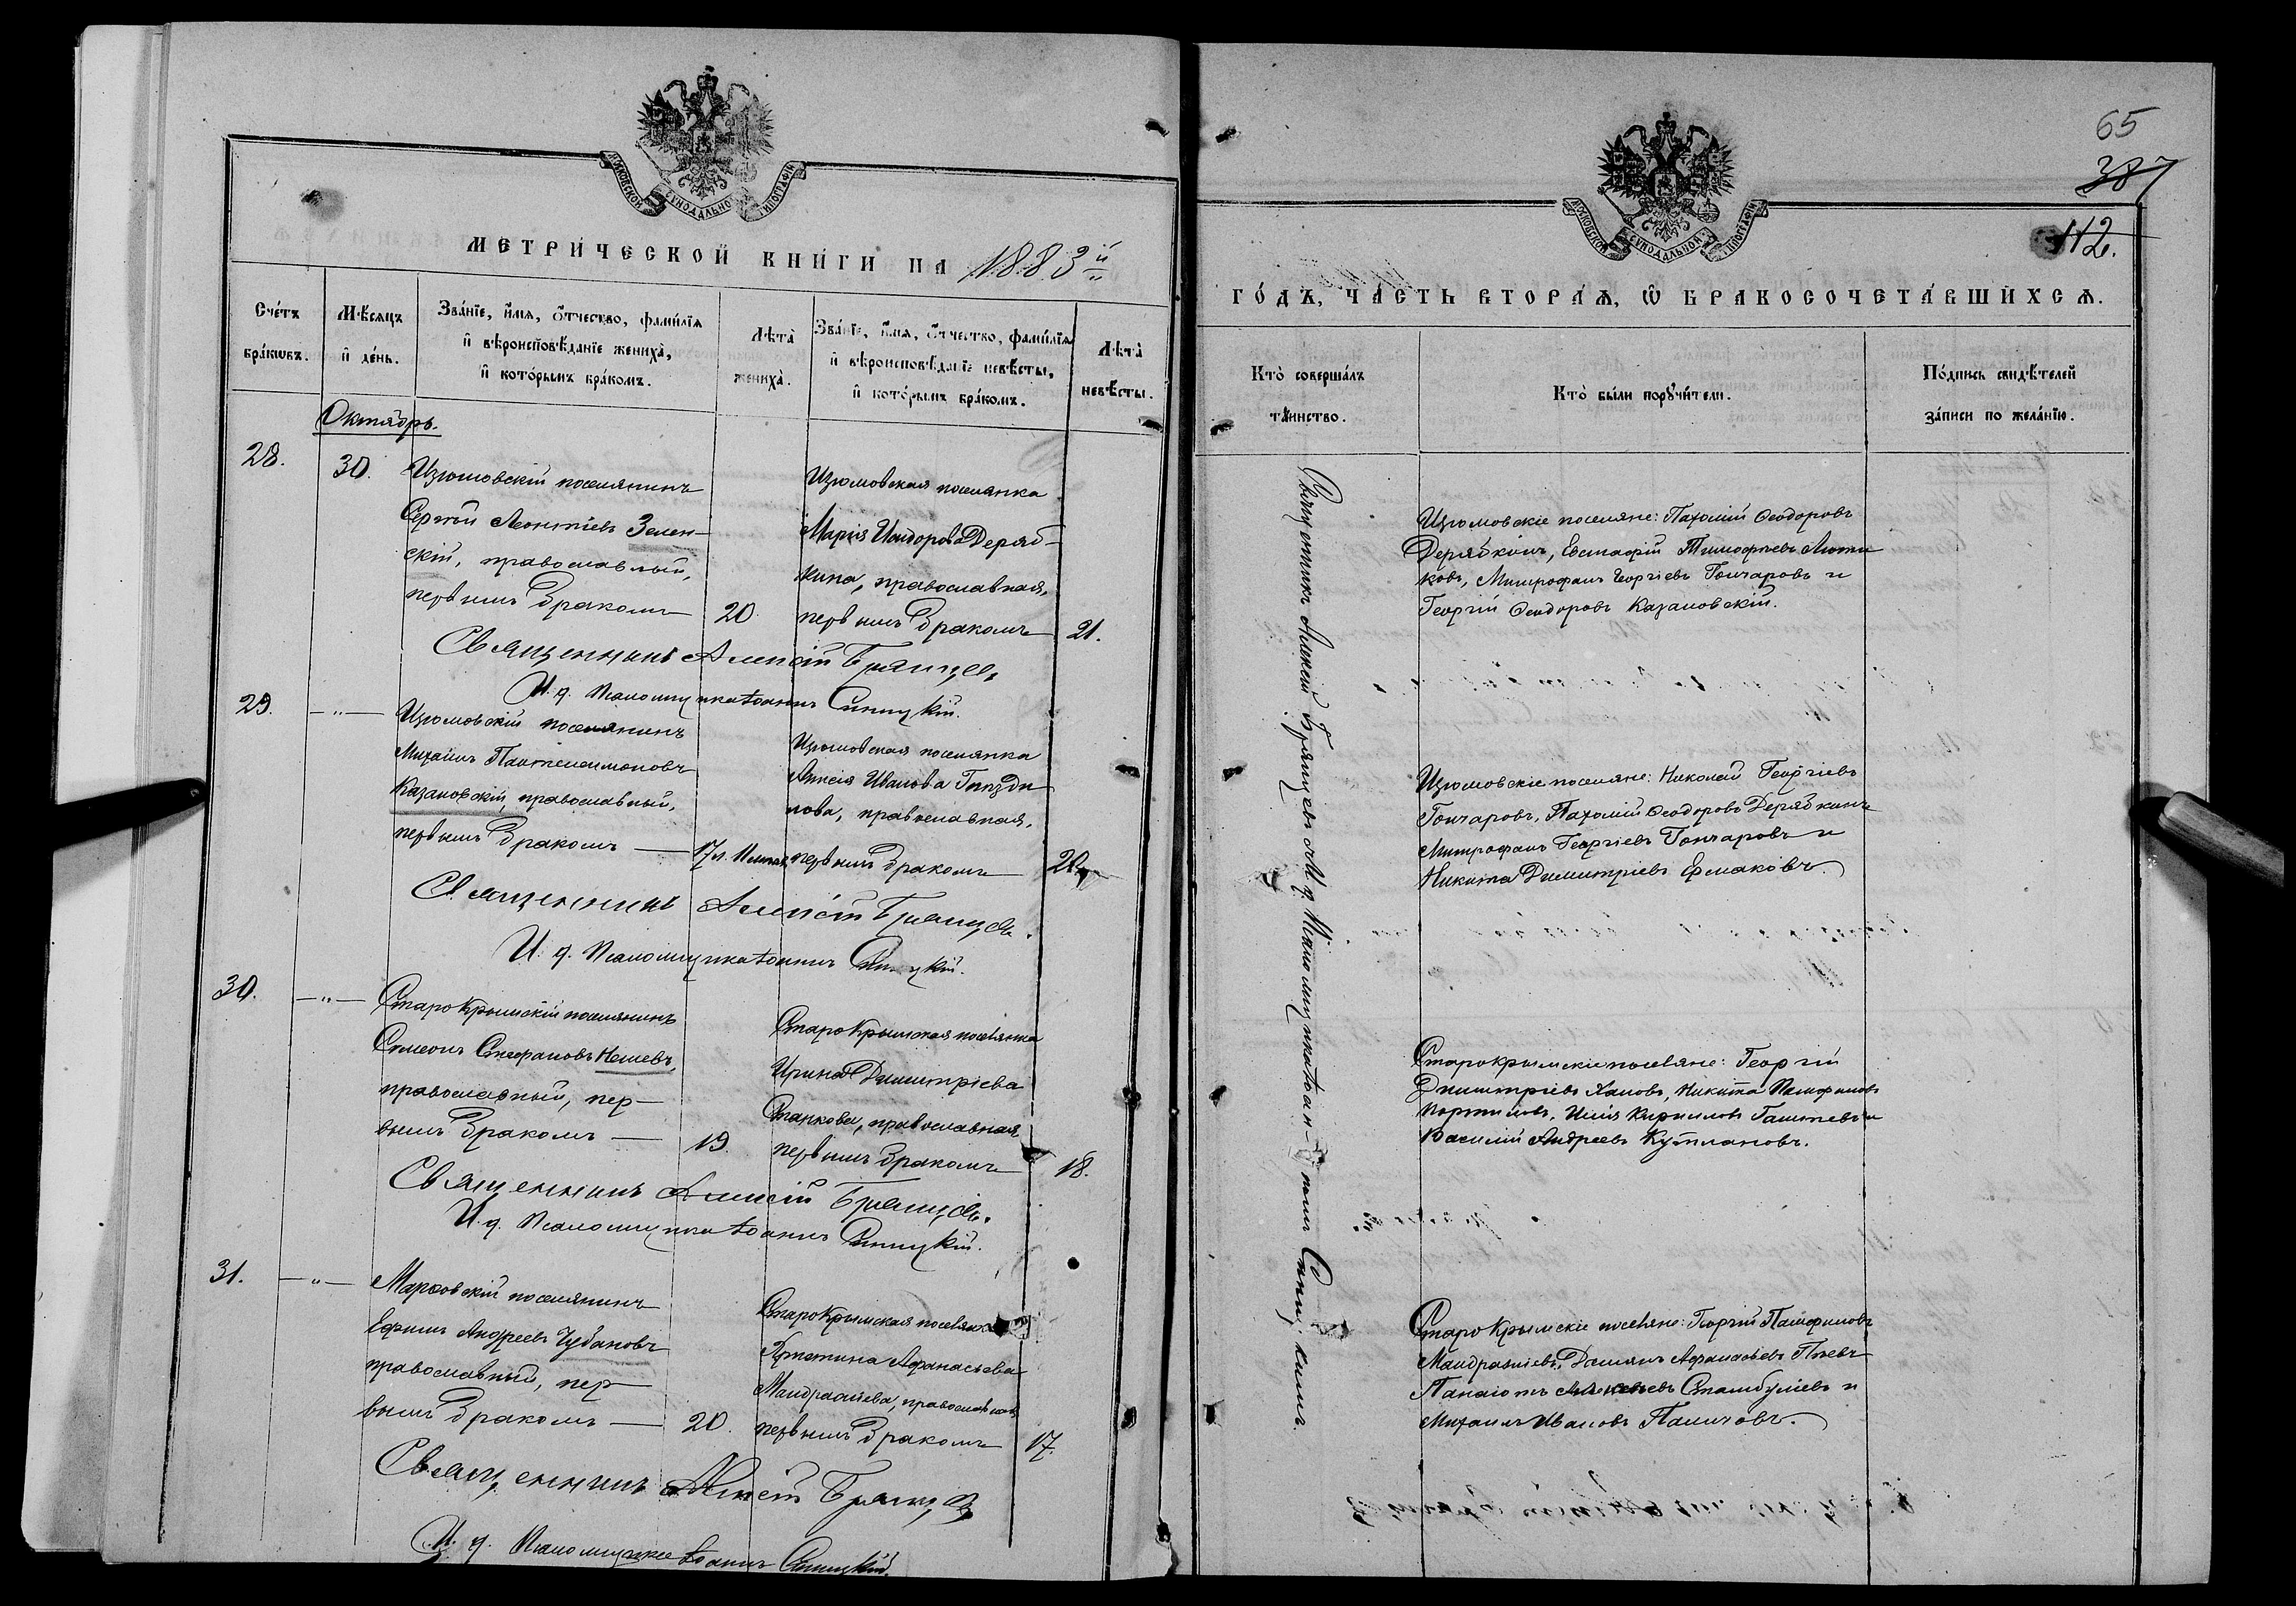 МОСКОВСКОЙ СѴНОДАЛЬНОЙ ТИПОГРАФІИ
МЕТРИЧЕСКОЙ КНИГИ НА 1883й
Счетъ браковъ.
Мѣсяцъ и день.
Званіе, имя, отчество, фамилія
и вѣроисповѣданіе жениха,
и которымъ бракомъ.
Лѣта
жениха.
Званіе, имя, отчество, фамилія
и вѣроисповѣданіе невѣсты,
и которымъ бракомъ.
Лѣта
невѣсты.
Октябрь.
28.
30.
Изюмовскій поселянинъ
Сергѣй Леонтіевъ Зелен-
скій, православный,
первымъ бракомъ
20
Изюмовская поселянка
Марія Исидорова Деряб-
кина, православная,
первымъ бракомъ
21.
Священникъ Алексій Брянцевъ
И. д. Псаломщика Іоаннъ Синицкій.
29.
— " —
Изюмовскій поселянинъ
Михаилъ Пантелеимоновъ
Казановскій, православный,
первымъ бракомъ —
17 л.
Изюмовская поселянка
Анисія Иванова Гнѣзди
лова, православная,
первымъ бракомъ
Священникъ Алексій Брянцевъ.
И. д. Псаломщика Іоаннъ Синицкій.
30.
— " —
Старокрымскій поселянинъ
Симеонъ Стефановъ Нешевъ,
православный, пер-
вымъ бракомъ —
19.
Старокрымская поселянка
Ирина Димитріева
Станкова, православная
первымъ бракомъ
18.
Священникъ Алексій Брянцевъ.
И. д. Псаломщика Іоаннъ Синицкій.
31.
— " —
Марфовскій поселянинъ
Ефимъ Андреевъ Чубановъ
православный, пер-
вымъ бракомъ —
20.
Старокрымская поселянка
Афанасьева
православная
первымъ бракомъ
17.
Священникъ Алексій Брянцевъ
И. д. Псаломщика Іоаннъ Синицкій.
65
387
112.
МОСКОВСКОЙ СѴНОДАЛЬНОЙ ТИПОГРАФІИ
ГОДЪ, ЧАСТЬ ВТОРАЯ, Ѡ БРАКОСОЧЕТАВШИХСЯ.
Кто совершалъ
таинство.
Кто были поручители.
Подпись свидѣтелей
записи по желанію.
Священникъ Алексій Брянцевъ И. д. Псаломщика Іоанномъ Синицкимъ.
Изюмовскіе поселяне: Пахомій Ѳеодоровъ
Дерябкинъ, Евстафій Тимофѣевъ Люти
ковъ, Митрофанъ Георгіевъ Гончаровъ и
Георгій Ѳеодоровъ Казановскій.
Изюмовскіе поселяне: Николай Георгіевъ
Гончаровъ, Пахомій Ѳеодоровъ Дерябкинъ
Митрофанъ Георгіевъ Гончаровъ и
Никита Димитріевъ Ермаковъ.
Старокрымскіе поселяне: Георгій
Димитріевъ Никита
Илія Кирилловъ и
Василій Андреевъ Кутлановъ.
Старокрымскіе поселяне: Георгій
Даміанъ Афанасьевъ
Панаіотъ Алексѣевъ Стамбуліевъ и
Михаилъ Ивановъ